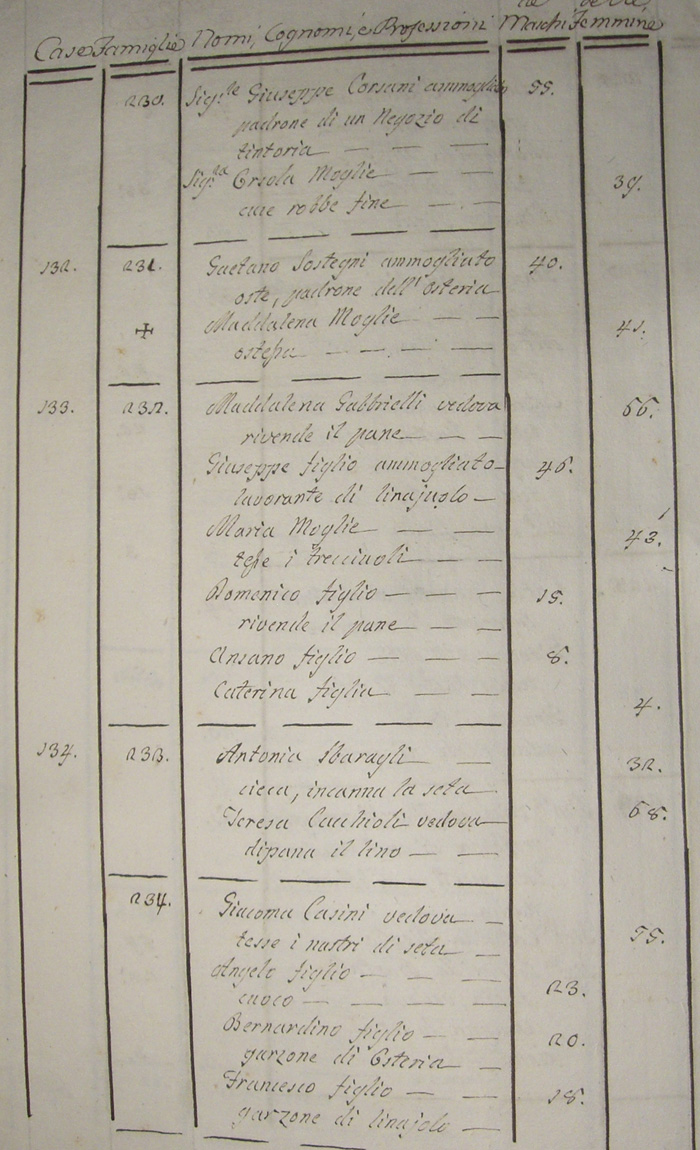 Case Famiglie Nomi, Cognomi, e Professioni Maschi Femmine
230. Sig.re Giuseppe Corsani ammogliato 55.
padrone di un Negozio di
tintoria
Sig.ra Orsola Moglie 39.
cuce robbe fine
132. 231. Gaetano Sostegni ammogliato 40.
oste, padrone dell' osteria
Maddalena Moglie 41.
ostessa
133. 232. Maddalena Gabbrielli vedova 66.
rivende il pane
Giuseppe figlio ammogliato 46.
lavorante di linajuolo
Maria Moglie 43.
tesse i trecciuoli
Domenico figlio 15.
rivende il pane
Ansano figlio 8.
Caterina figlia 4.
134. 233. Antonia Sbaragli 32.
cieca, incanna la seta
Teresa Cacchioli vedova 68.
dipana il lino
234. Giacoma Casini vedova 55.
tesse i nastri di seta
Angelo figlio 23.
cuoco
Bernardino figlio 20.
garzone di Osteria
Francesco figlio 18.
garzone di linajolo